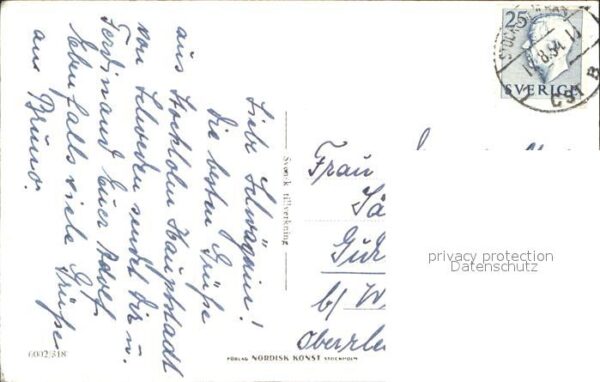 Liebe Schwägerin!
Die besten Grüße
aus Stockholm Hauptstadt
von Schweden sendet Dir u.
Ferdinand Euer Adolf
Ebenfalls viele Grüße
an Bruno.
Svensk tillverkning
Frau
b/ W
25
SVERIGE
8.54
privacy protection
Datenschutz
6002/318
FÖRLAG NORDISK KONST STOCKHOLM